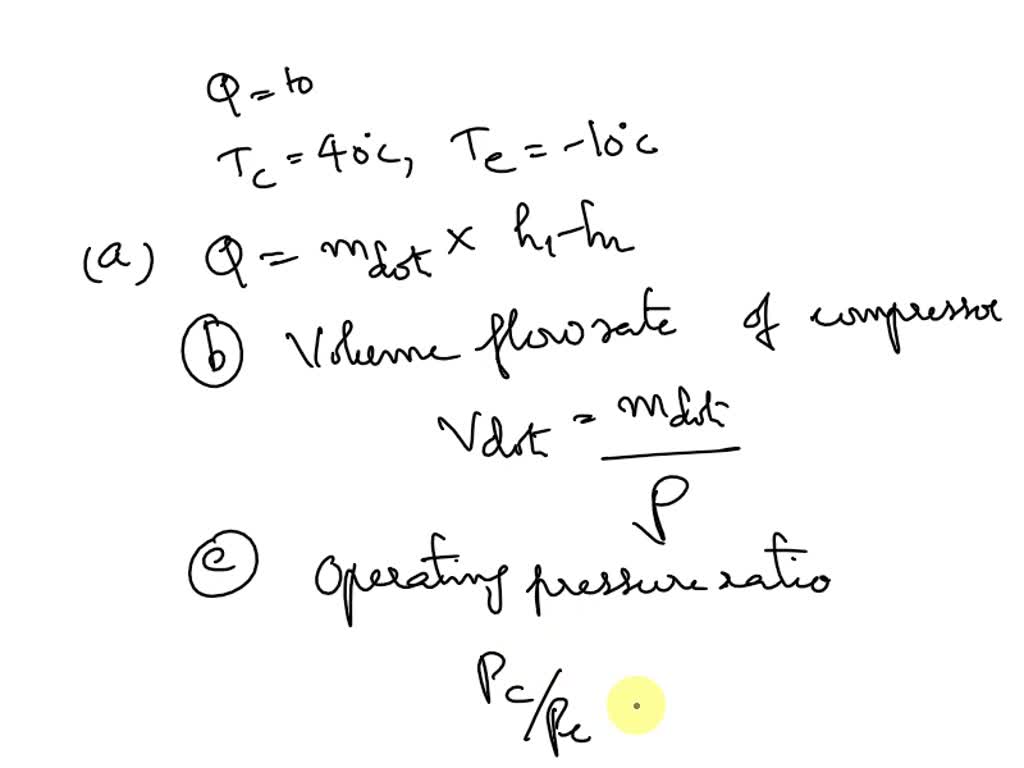 Q = to
Tc = 40°c, Te = -10°c
(a) Q = mdot × h1-h2
(b) Volume flow rate of compressor
Vdot = mdot / ρ
(c) Operating pressure ratio
Pc/Pe